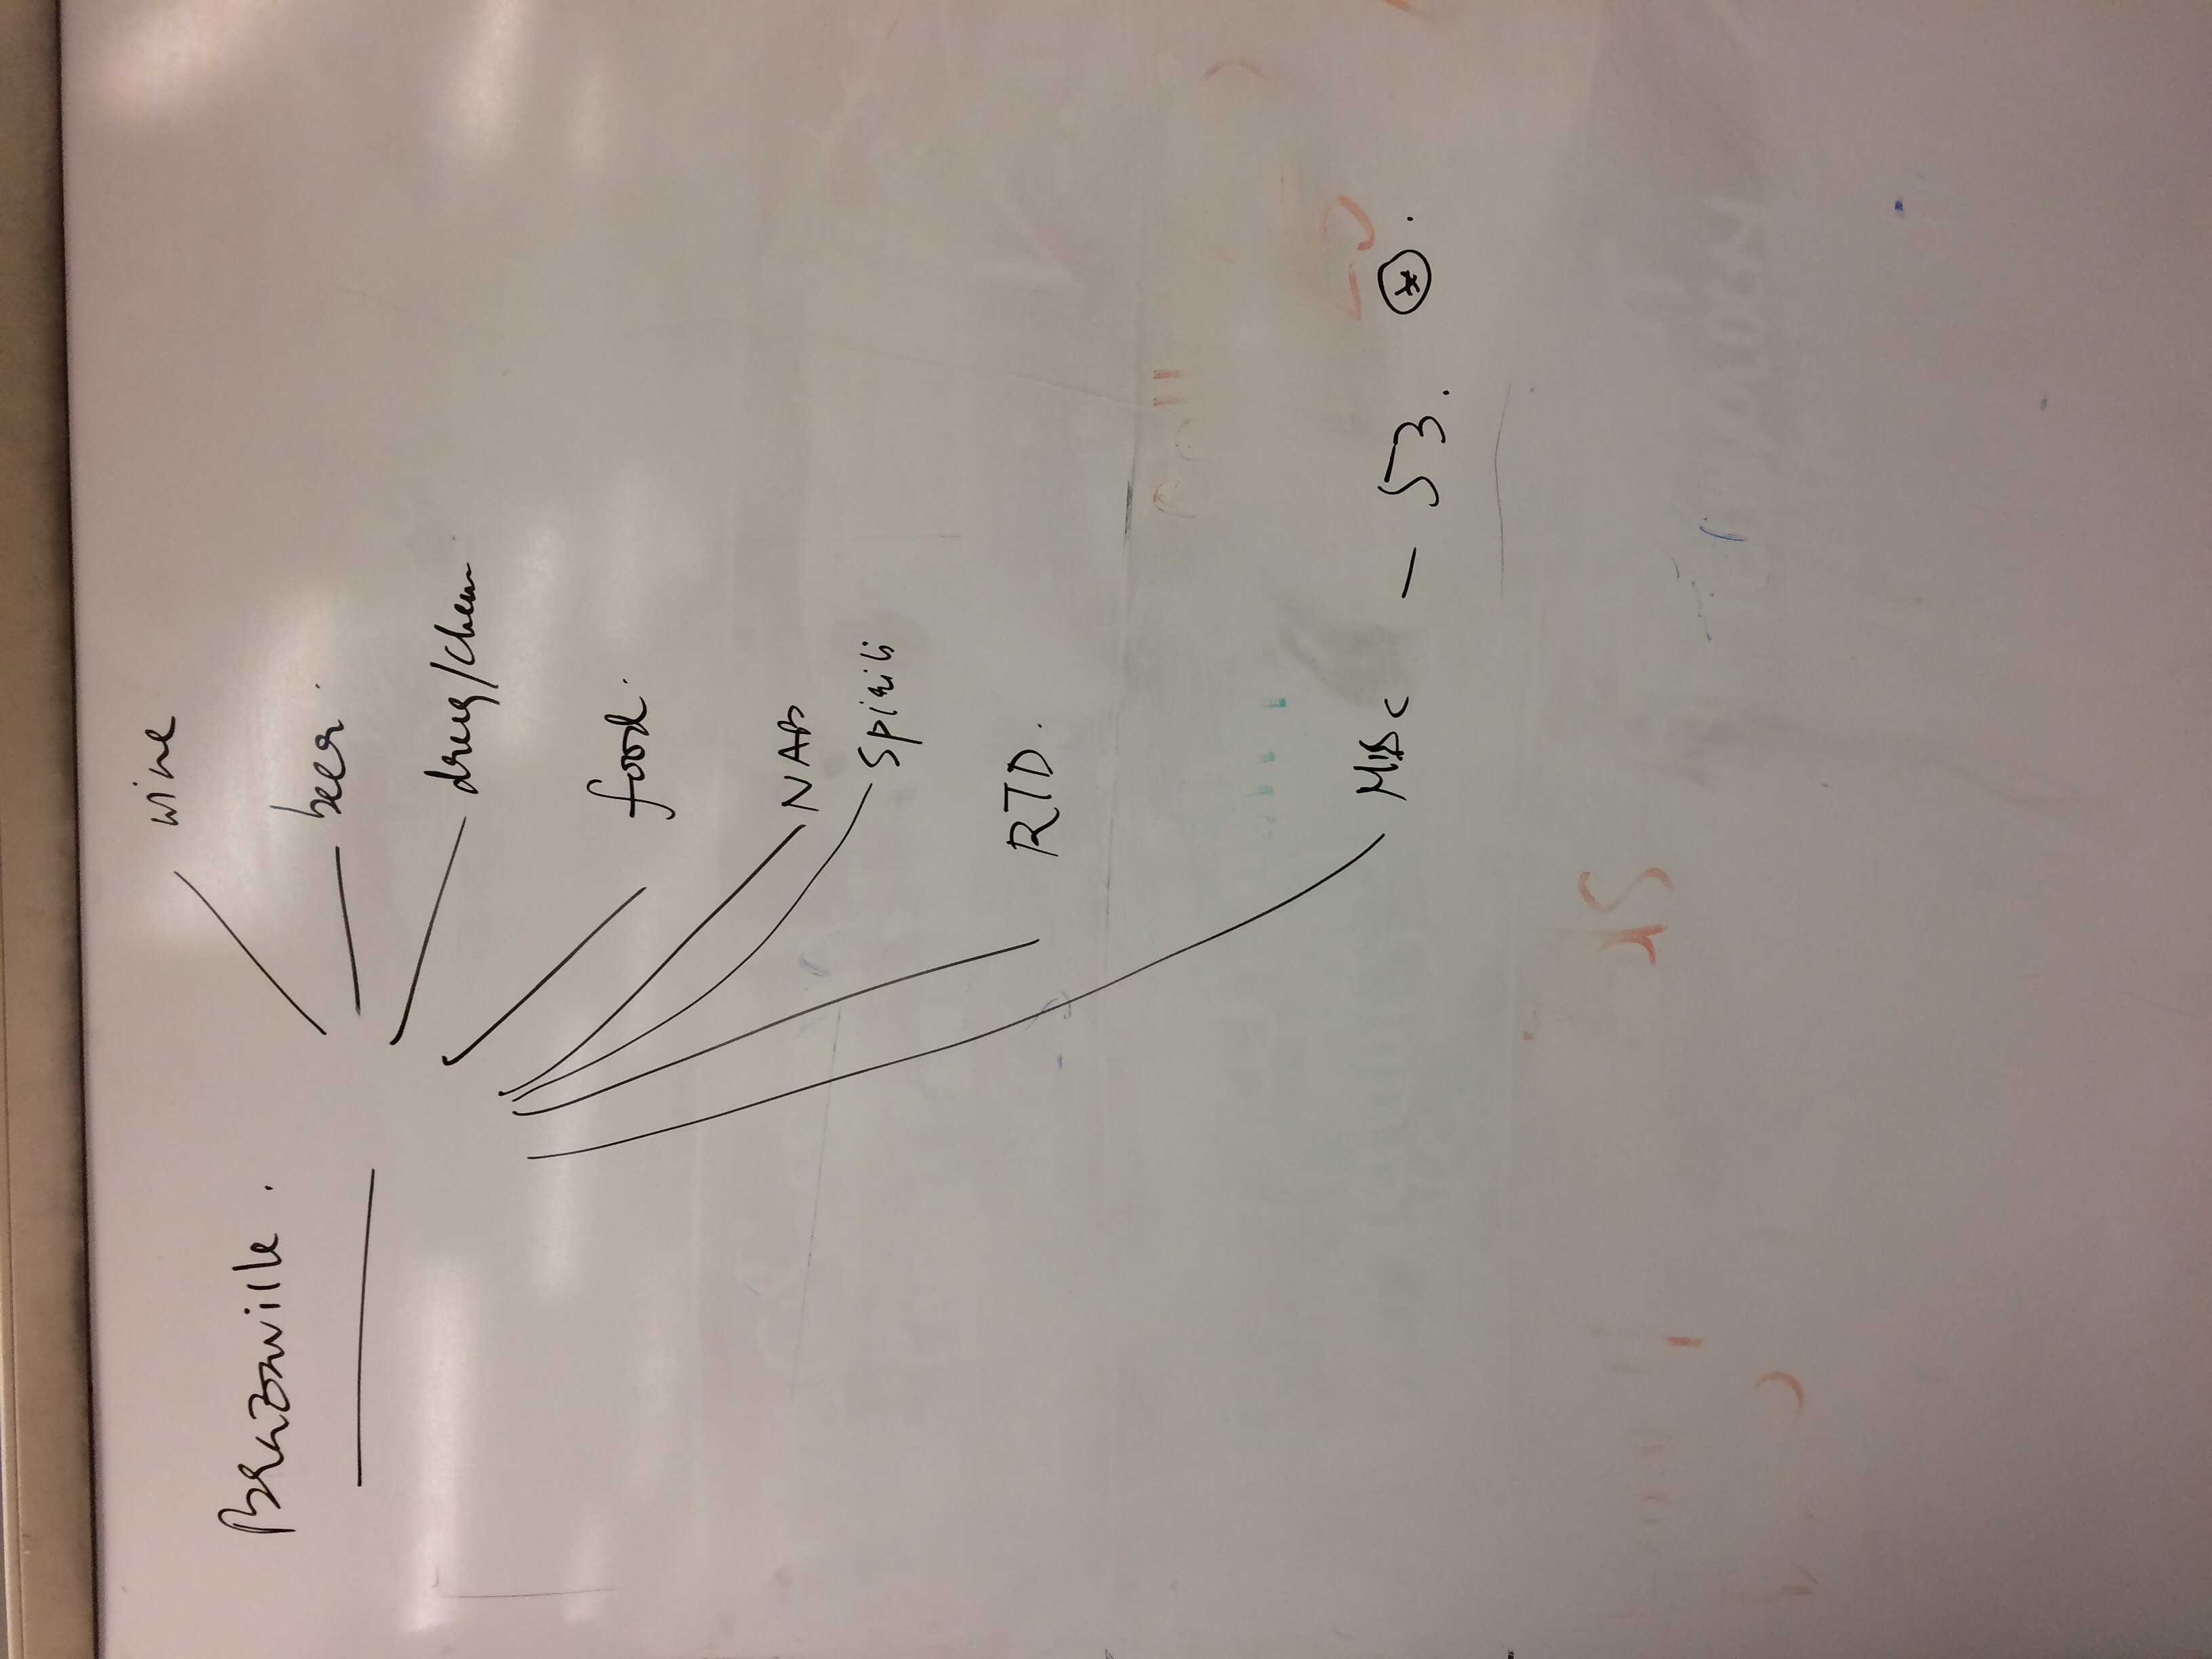 wine
Brazaville.
beer.
drug/chem
food.
NAB
Spirits
RTD.
Misc - 53. *.